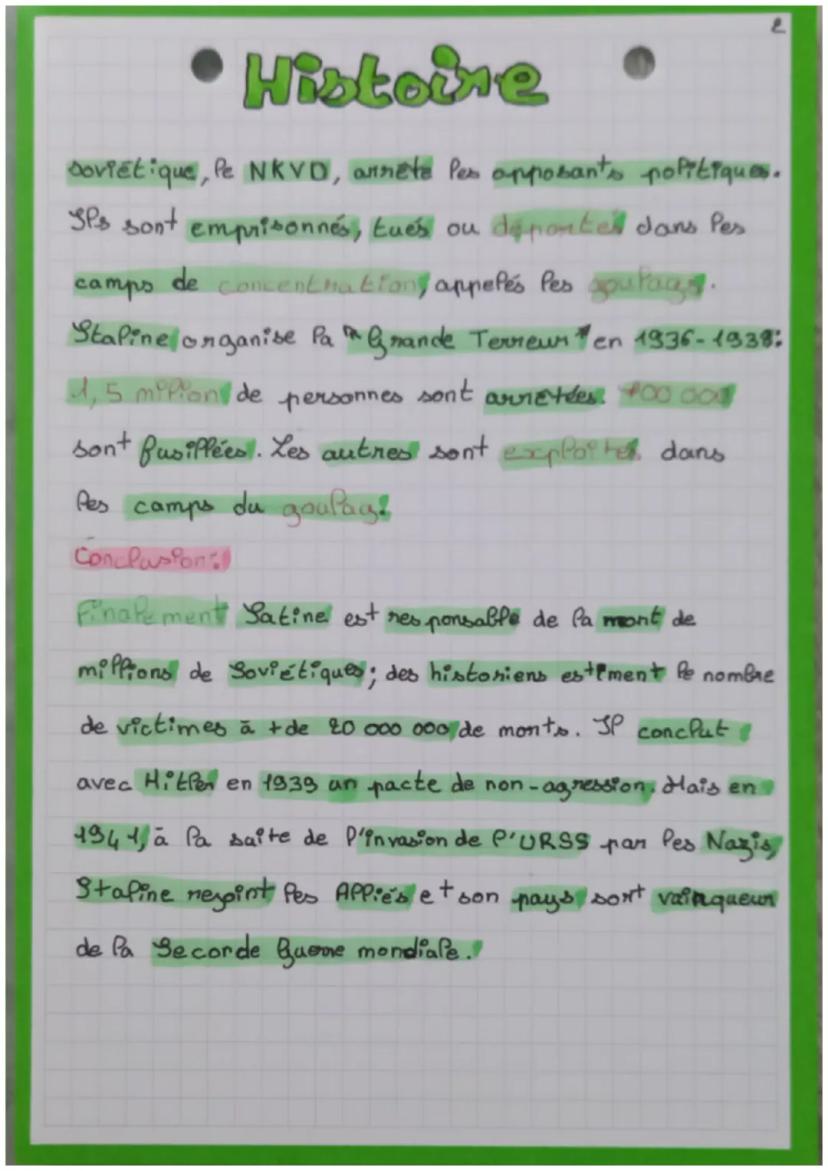 2
Histoire
soviétique, le NKVD, arrête les opposants politiques.
Ils sont emprisonnés, tués ou déportés dans les
camps de concentration, appelés les goulags.
Staline organise la "Grande Terreur" en 1936-1938:
1,5 million de personnes sont arrêtées. 700 000
sont fusillées. Les autres sont exploités dans
les camps du goulag.
Conclusion:
Finalement Satine est responsable de la mort de
millions de Soviétiques; des historiens estiment le nombre
de victimes à + de 20 000 000 de morts. Il conclut
avec Hitler en 1939 un pacte de non-agression. Mais en
1941, à la suite de l'invasion de l'URSS par les Nazis,
Staline rejoint les Alliés et son pays sort vainqueur
de la Seconde Guerre mondiale.